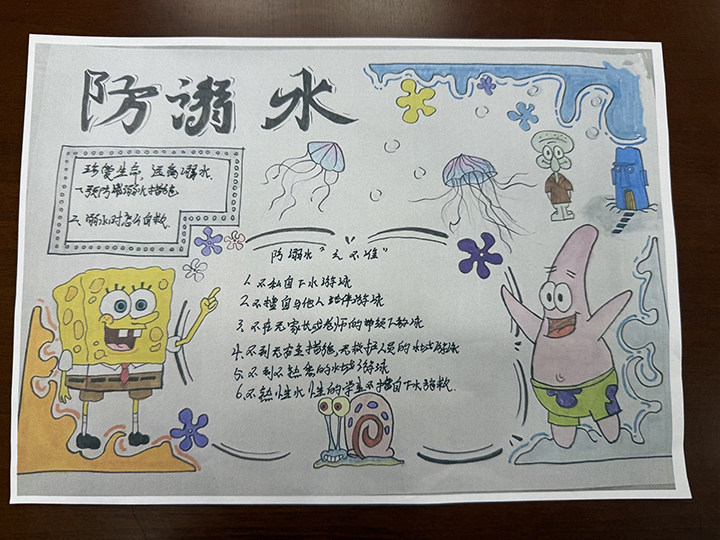 防溺水
珍爱生命，远离溺水.
一、预防溺水措施
二、溺水时怎么自救.
防溺水“六不准”
1.不私自下水游泳
2.不擅自与他人结伴游泳
3.不在无家长或老师的带领下游泳
4.不到无安全措施、无救护人员的水域游泳
5.不到不熟悉的水域游泳
6.不熟悉水性的学生不擅自下水施救.